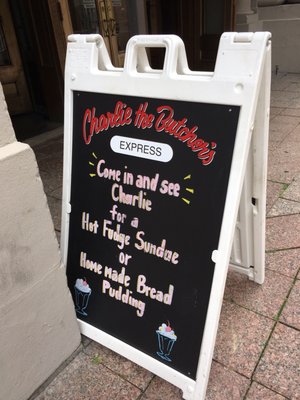 Charlie the Butcher's
EXPRESS
Come in and see
Charlie
for a
Hot Fudge Sundae
or
Home made Bread
Pudding